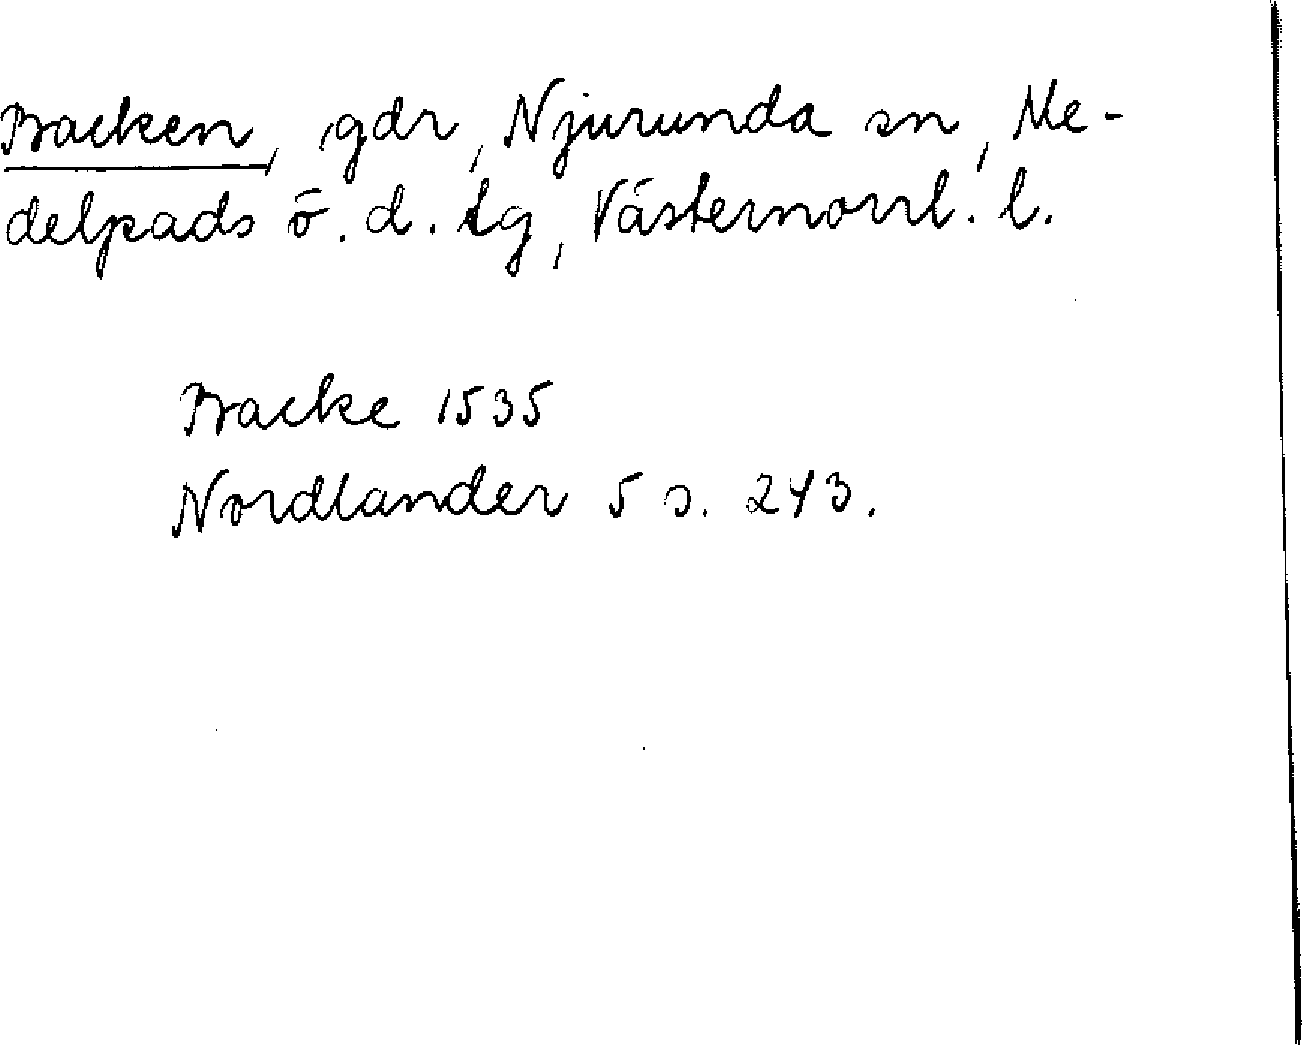 Backen, gdr, Njurunda sn, Me-
delpads ö. d. tg, Västernorrl. l.
Backe 1535
Nordlander 5 s. 243.